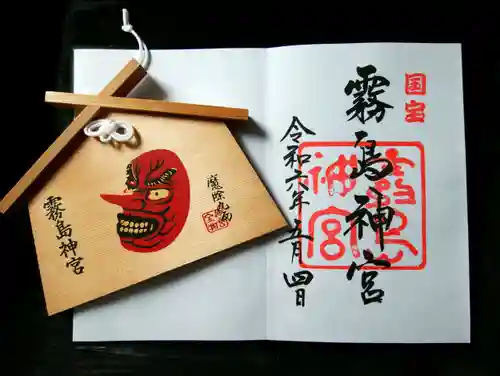 国宝
霧島神宮
霧島神宮
令和六年五月四日
魔除九面
霧島神宮